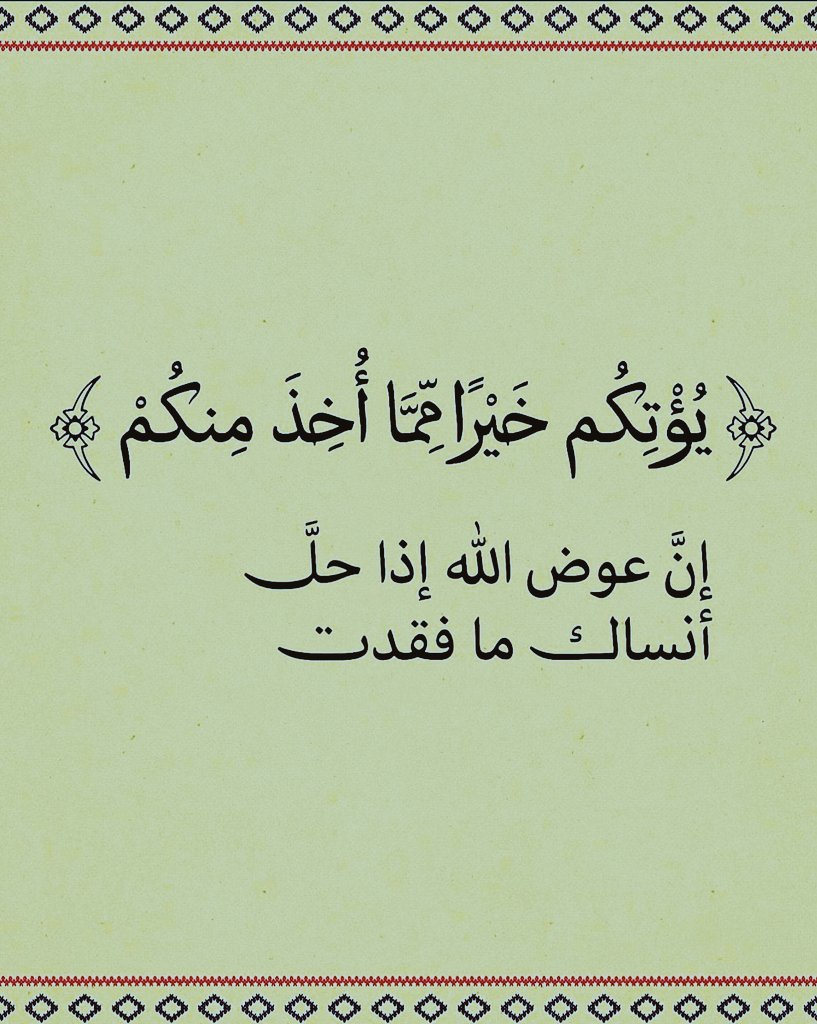 ﴿ يُؤْتِكُم خَيْرًا مِّمَّا أُخِذَ مِنكُمْ ﴾
إنَّ عوض الله إذا حلَّ
أنساك ما فقدت